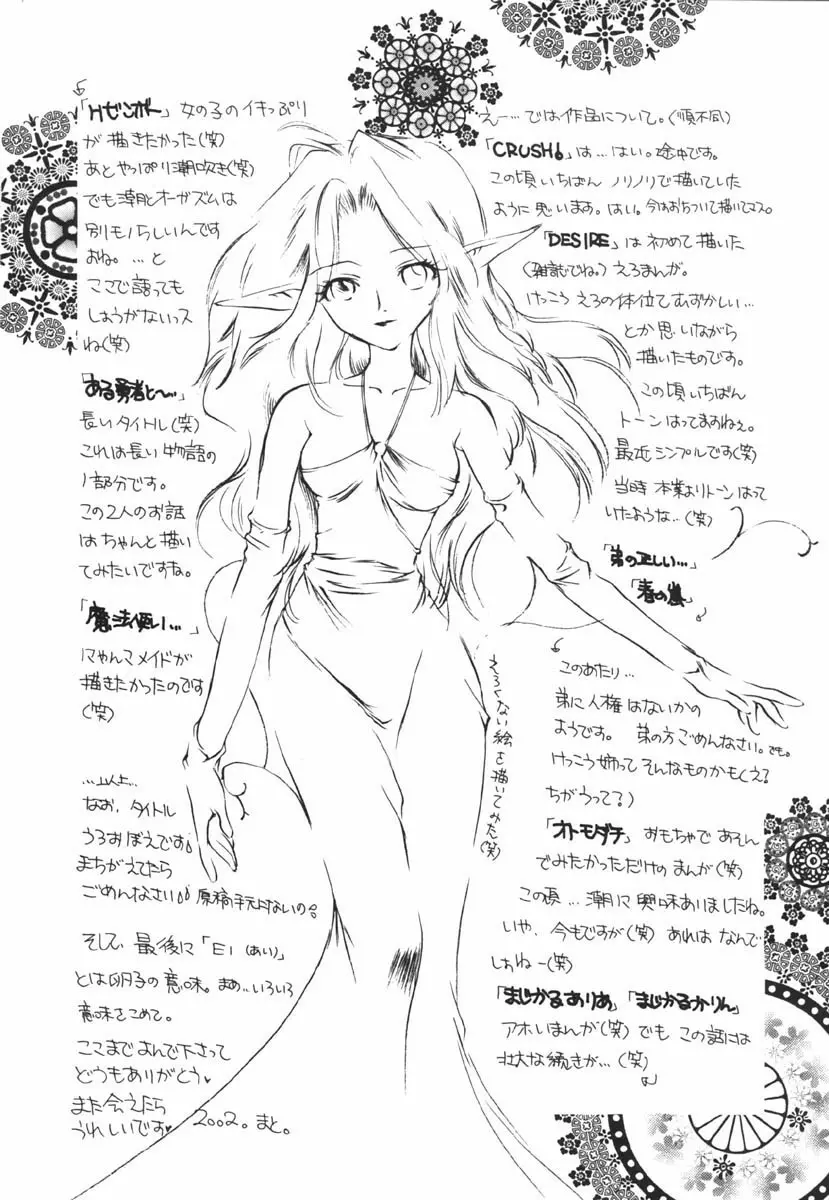 えー…では作品について。(順不同)
「CRUSH!」は…はい。途中です。
この頃いちばん ノリノリで描いていた
ように思います。はい。今はおちついて描いてマス。
「DESIRE」は初めて描いた
(雑誌でね。)えろまんが。
けっこう えろの体位てむずかしい…
とか思いながら
描いたものです。
この頃いちばん
トーンはってますねぇ。
最近シンプルです(笑)
当時 本業よりトーンはって
いたような…(笑)
「弟の正しい…」
「春の嵐」
このあたり…
弟に人権はないかの
ようです。弟の方ごめんなさい。でも。
けっこう姉ってそんなものかもよ?
ちがうって?)
「オトモダチ」おもちゃであそん
でみたかっただけのまんが(笑)
この頃…潮に興味ありましたね。
いや、今もですが(笑)あれはなんで
しょねー(笑)
「まじかるありあ」「まじかるかりん」
アホいまんが(笑)でも この話には
壮大な続きが…(笑)
「Hゼンボー」女の子のイキっぷり
が描きたかった(笑)
あとやっぱり潮吹き(笑)
でも潮とオーガズムは
別モノらしいんです
よね。…と
ココで語っても
しょうがないっス
ね(笑)
「ある勇者と〜…」
長いタイトル(笑)
これは長い物語の
1部分です。
この2人のお話
はちゃんと描い
てみたいですね。
「魔法使い…」
にゃんこメイドが
描きたかったのです
(笑)
…以上…
なお、タイトル
うろおぼえです。
まちがえてたら
ごめんなさい。原稿手元にないの。
そして、最後に「EI(あい)」
とは卵子の意味。まぁ…いろいろ
意味をこめて。
ここまでよんで下さって
どうもありがとう♥
また会えたら
うれしいです♥ 2002。まと。
えろくない絵を描いてみた(笑)